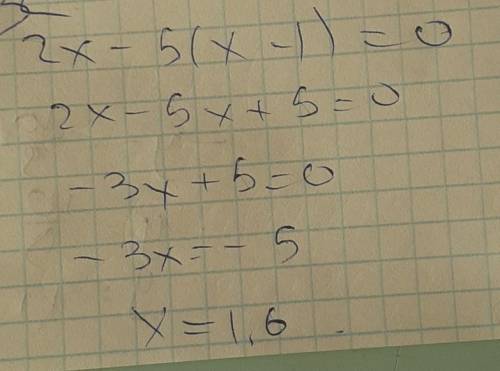 2x - 5(x - 1) = 0
2x - 5x + 5 = 0
- 3x + 5 = 0
- 3x = - 5
x = 1,6